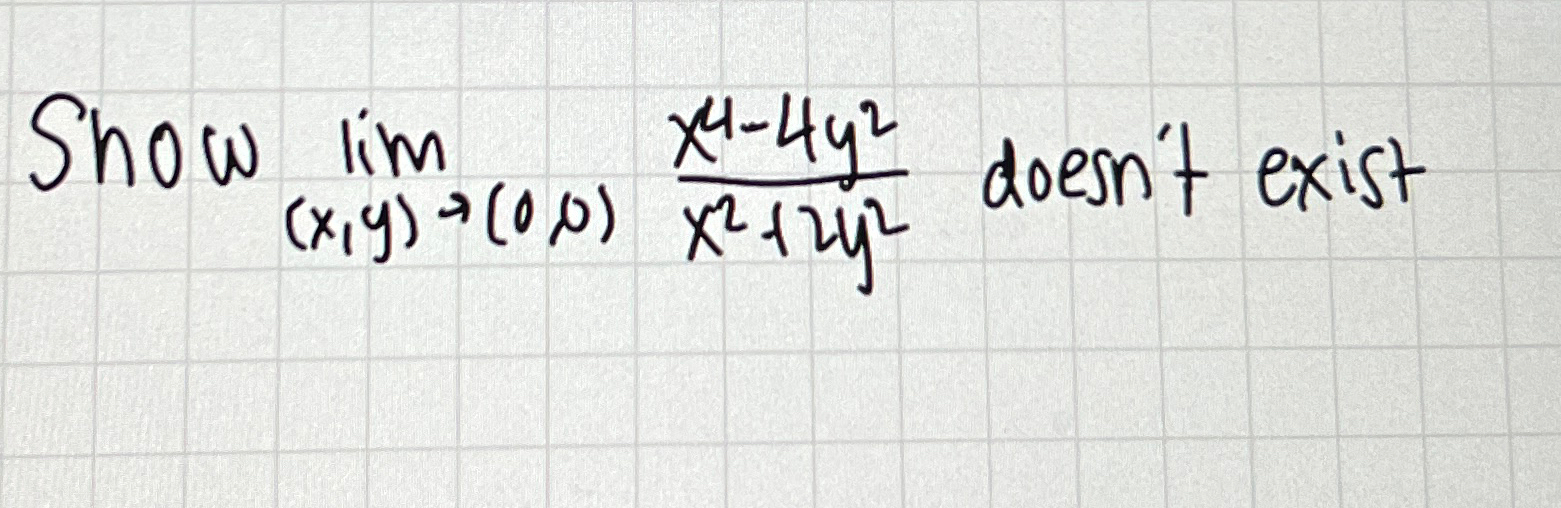 Show lim (x,y)→(0,0) x⁴-4y² / x²+2y² doesn't exist